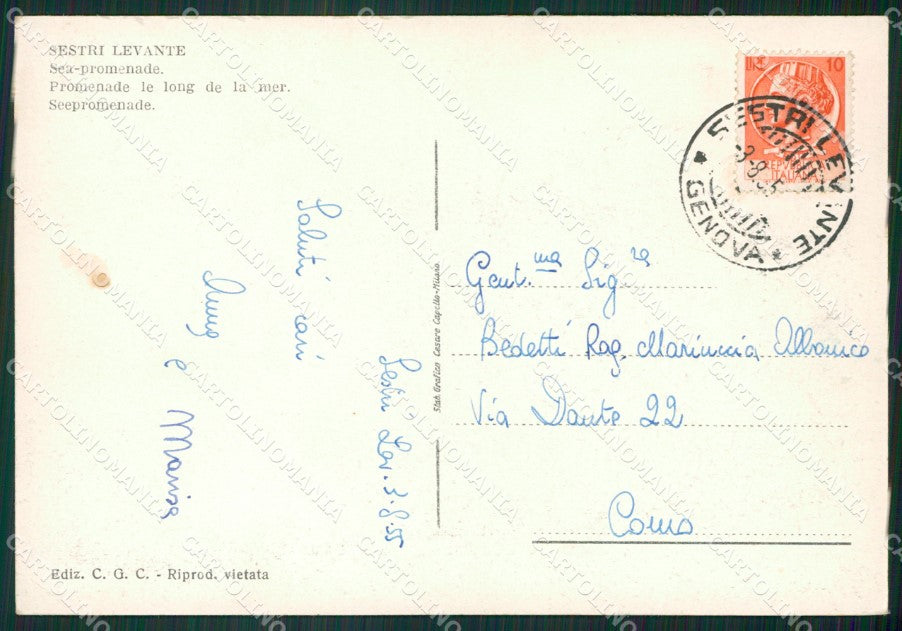 SESTRI LEVANTE
Sea-promenade.
Promenade le long de la mer.
Seepromenade.
LIRE 10
REPUBBLICA
ITALIANA
SESTRI LEVANTE
3-8-55
* GENOVA *
Saluti cari
Anna e Marisa
Sestri Lev. 3.8.55
Stab. Grafico Cesare Capello-Milano
Gent.ma Sig.ra
Bedetti Rag. Mariuccia Albonico
Via Dante 22
Como
Ediz. C. G. C. - Riprod. vietata
CARTOLINOMANIA